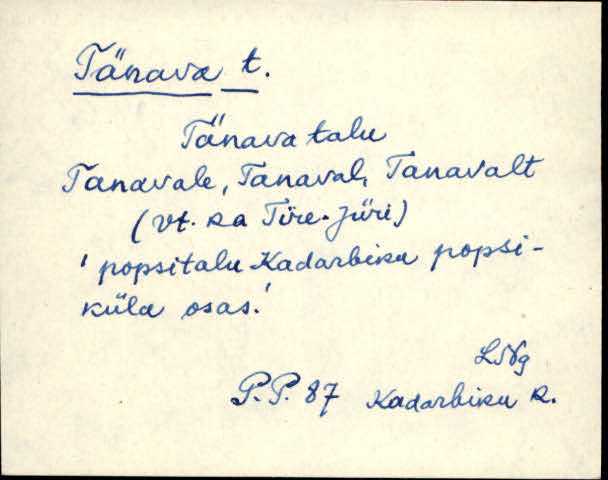 Tänava t.
Tänava talu
Tanavale, Tanaval, Tanavalt
(vt. ka Türe-Jüri)
' popsitalu Kadarbiku popsi-
küla osas.'
LNg
P.P. 87 Kadarbiku k.